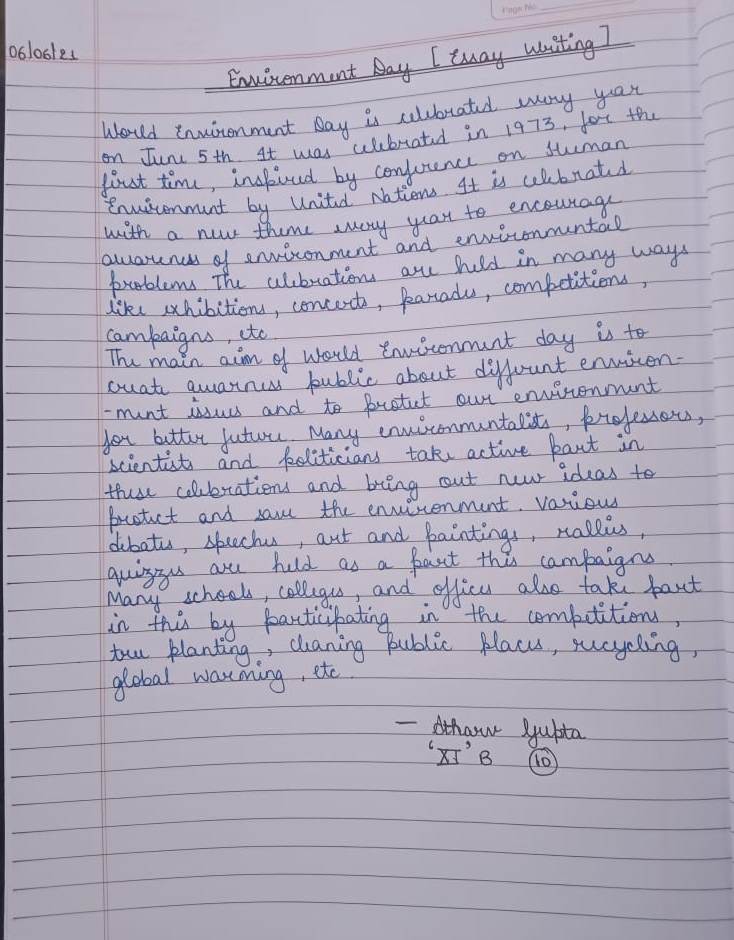 Page No.
06/06/21
Environment Day [Essay Writing]
World Environment Day is celebrated every year
on June 5th. It was celebrated in 1973, for the
first time, inspired by conference on Human
Environment by United Nations. It is celebrated
with a new theme every year to encourage
awareness of environment and environmental
problems. The celebrations are held in many ways
like exhibitions, concerts, parades, competitions,
campaigns, etc.
The main aim of World Environment day is to
create awarness public about different environ-
-ment issues and to protect our environment
for better future. Many environmentalists, professors,
scientists and politicians take active part in
these celebrations and bring out new ideas to
protect and save the environment. Various
debates, speeches, art and paintings, rallies,
quizzes are held as a part this campaigns.
Many schools, colleges, and offices also take part
in this by participating in the competitions,
tree planting, cleaning public places, recycling,
global warming, etc.
— Atharv Gupta
'XI' B (10)